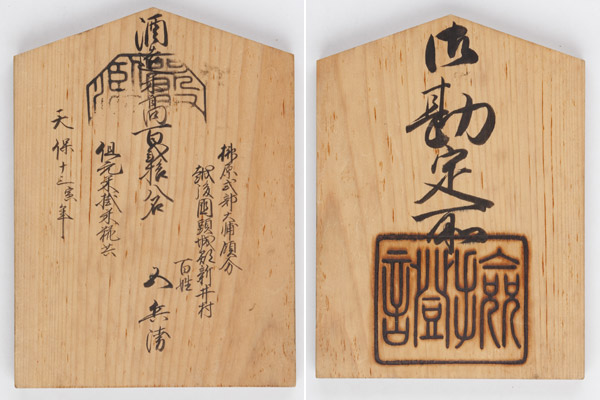 酒造米高百弐拾八石
但元米掛米糀共
天保十三寅年
榊原式部大輔領分
越後国頸城郡新井村
百姓
五兵衛
御勘定所
檢證